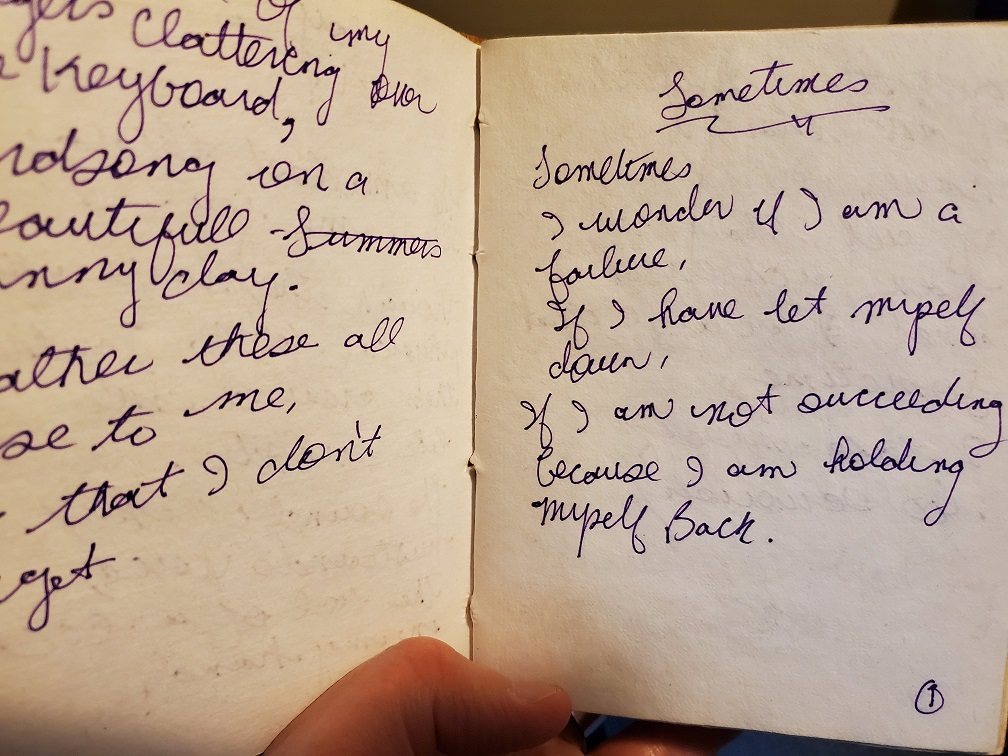 of my
clattering over
Keyboard,
on a
beautifull Summers
day.
these all
to me,
that I don't
get
Sometimes
Sometimes
I wonder if I am a
failure,
If I have let myself
down,
If I am not succeeding
because I am holding
myself Back.
1